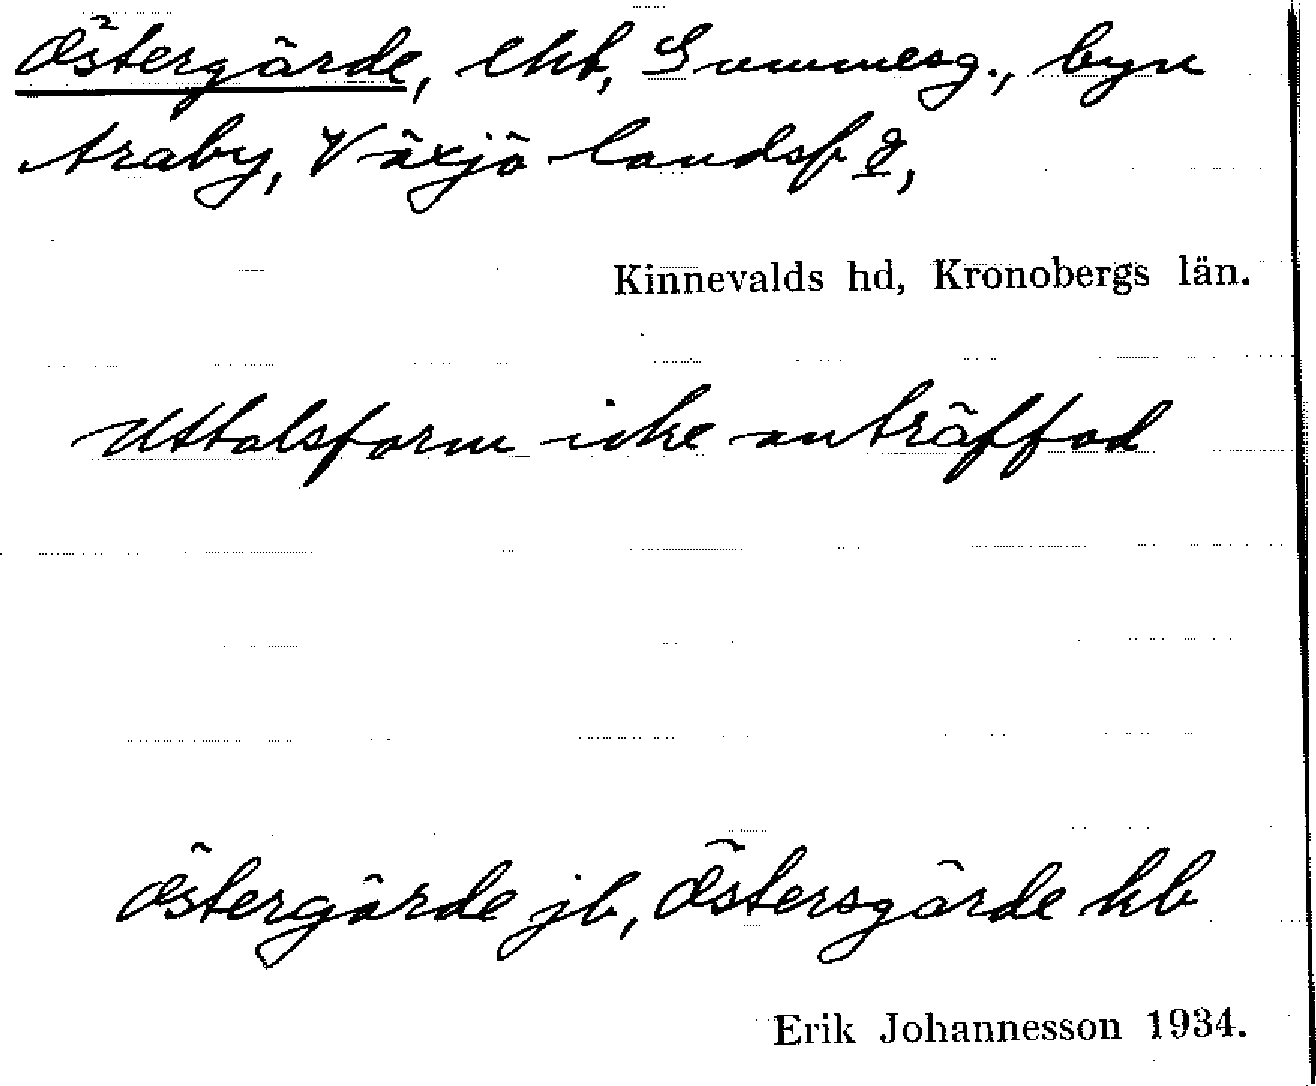 Östergärde, lht, Summesg., byn
Araby, Växjö landsf.,
Kinnevalds hd, Kronobergs län.
Uttalsform icke anträffad
Östergärde jb, Östersgärde hb
Erik Johannesson 1934.